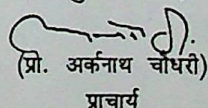 (प्रो. अर्कनाथ चौधरी)
प्राचार्य